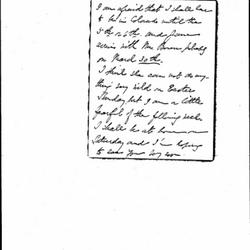 I am afraid that I shall have
to be in Colorado until the
5th or 6th. and
with Mr Brown
on March 30th.
I think she does not do any
thing very wild on Easter
Sunday but I am a little
fearful of the following week.
I shall be at home on
Saturday and I'm hoping
to see you